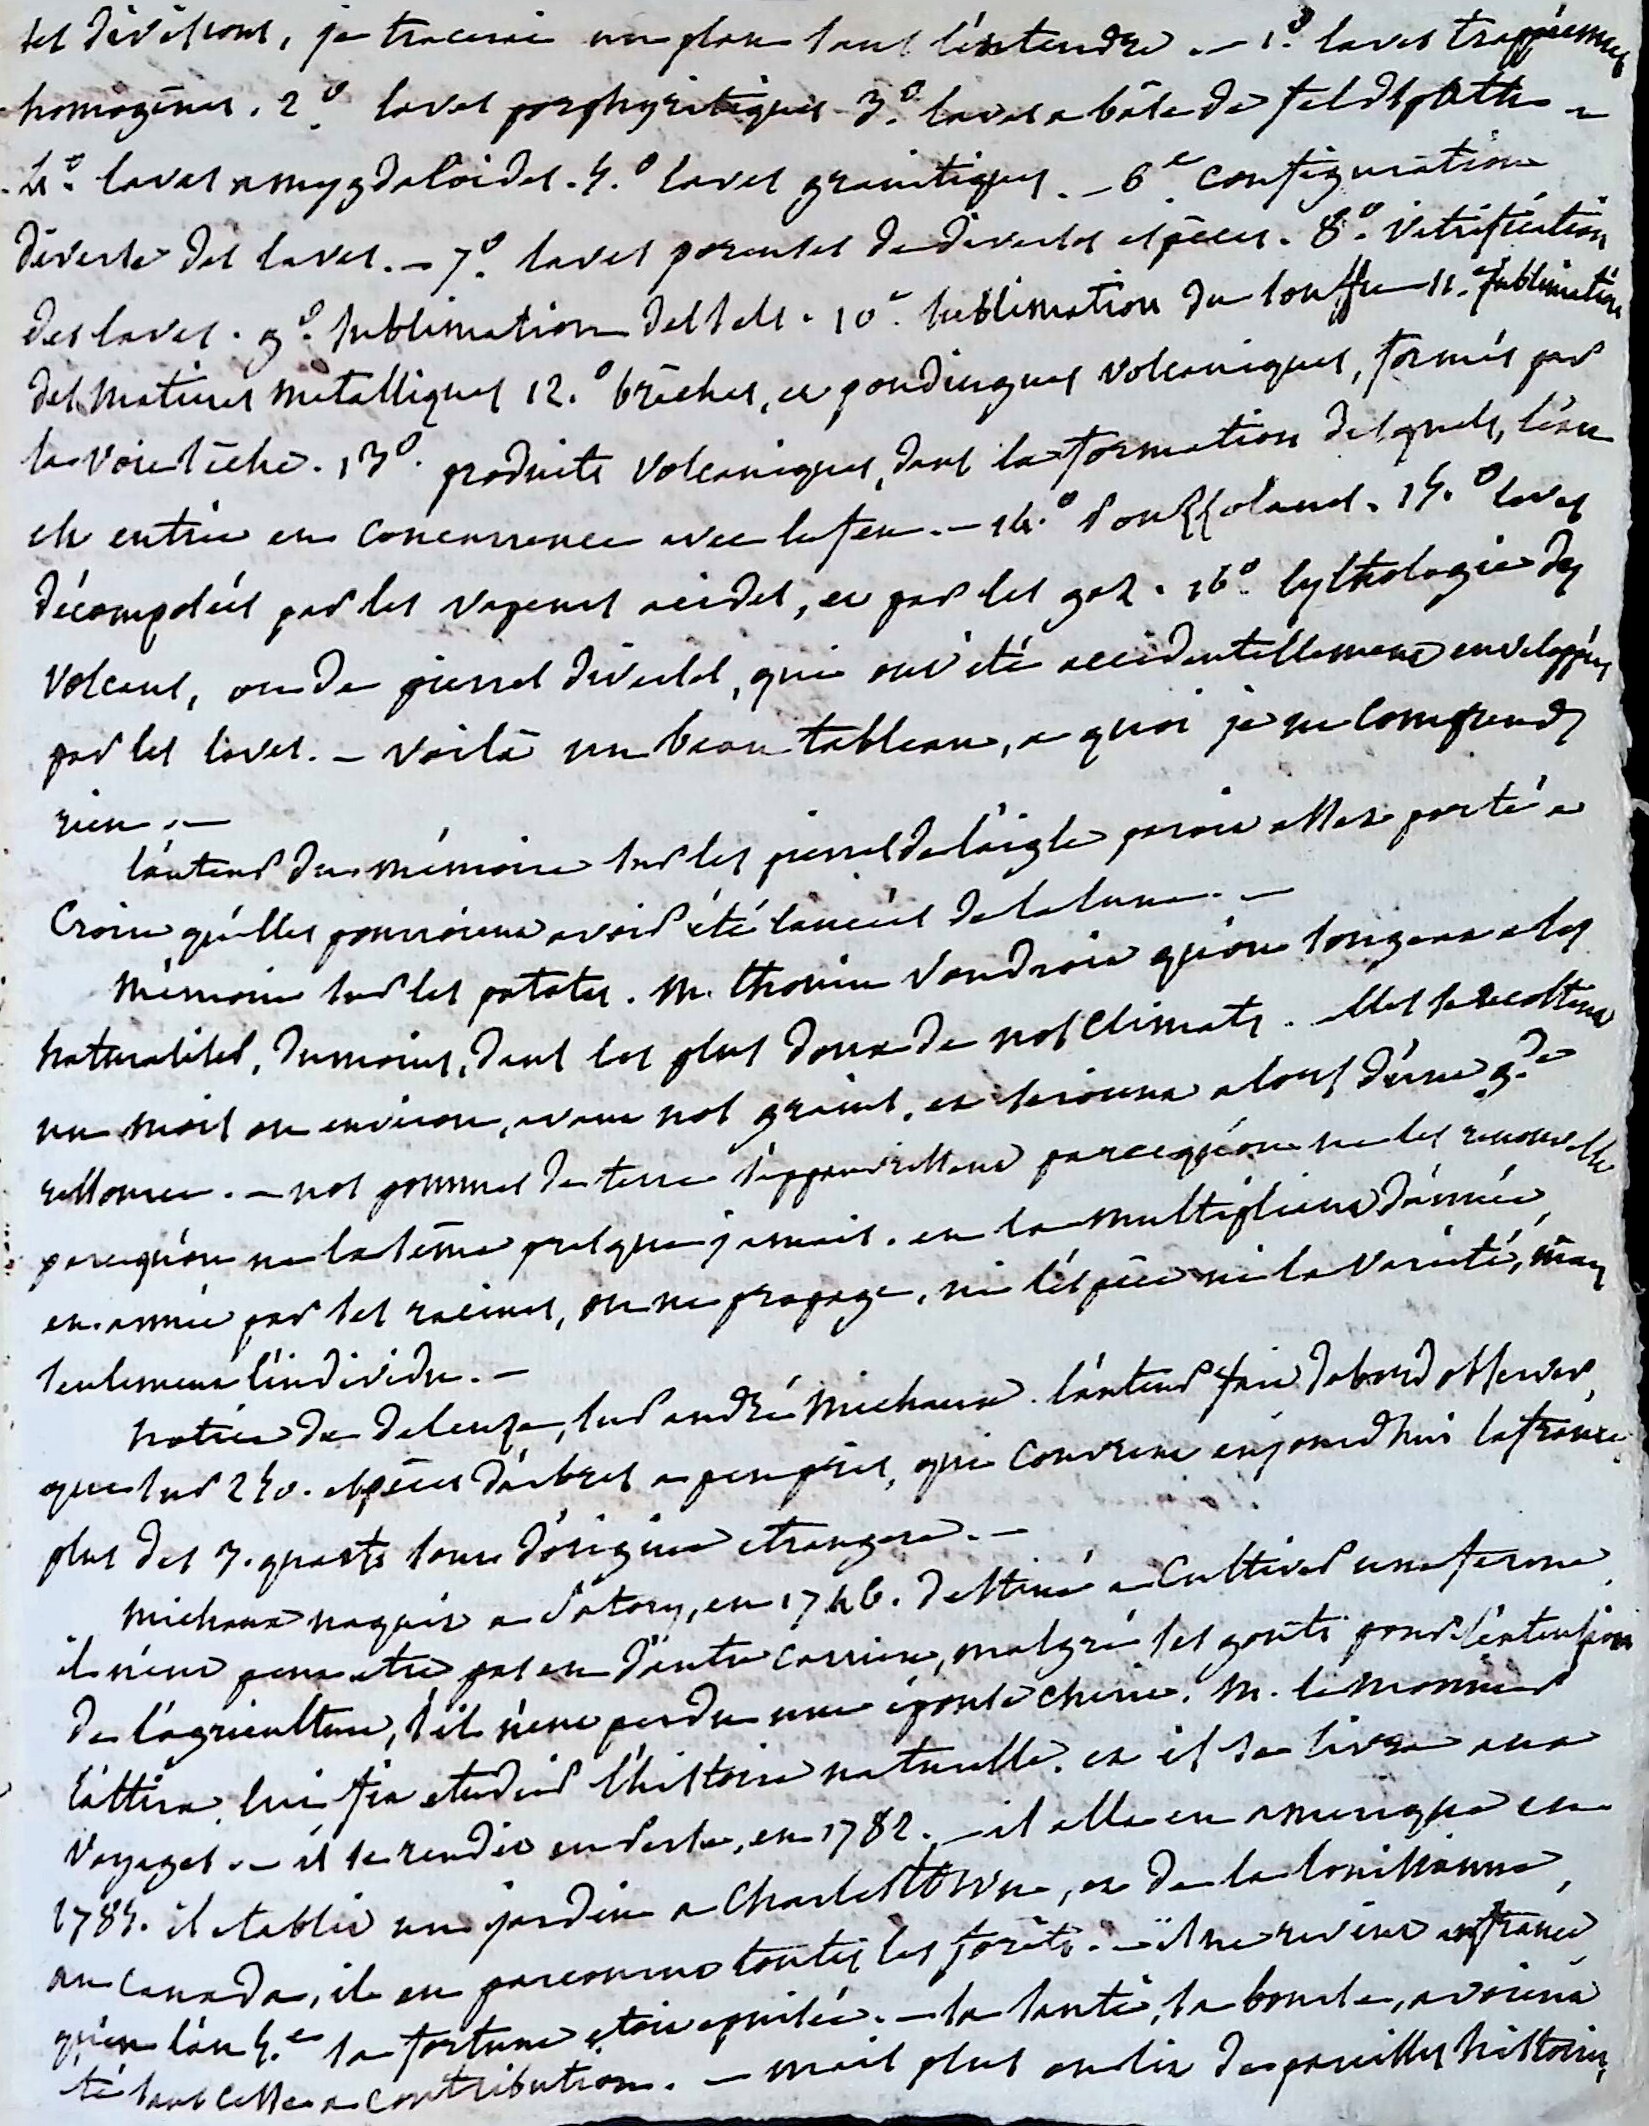 ses divisions, je tracerai un plan sans l'entendre. – 1.º laves trappéennes
homogènes. 2.º laves porphyritiques 3.º laves a bâse de feldspath –
4.º laves amygdaloïdes. 5.º laves granitiques. – 6.e configuration
diverse des laves. – 7.º laves poreuses de diverses espèces. 8.º vitrification
des laves. 9.º sublimation des sels. 10.e sublimation du souffre 11.e sublimation
des matieres metalliques 12.º brèches, et poudingues volcaniques, formés par
la voie sèche. 13.º produits volcaniques, dans la formation desquels, l'eau
est entrée en concurrence avec le feu. – 14.º Pouzzolanes. 15.º laves
décomposées par les vapeurs acides, et par les gaz. 16.º lythologie des
volcans, ou de pierres diverses, qui ont été accidentellement enveloppées
par les laves. – voilà un beau tableau, a quoi je ne comprends
rien. –
l'auteur du mémoire sur les pierres de l'aigle parait assez porté a
croire qu'elles pourroient avoir été lancées de la lune. –
mémoire sur les patates. m. thouin voudroit qu'on songeat a les
naturaliser, du moins, dans les plus doux de nos climats. elles se recoltent
un mois ou environ, avant nos grains, et seroient alors d'une g.de
ressource. – nos pommes de terre s'appauvrissent parcequ'on ne les renouvelle
parcequ'on ne la sème presque jamais. en la multipliant d'année,
en année par ses racines, on ne propage, ni l'espèce ni la variété, mais
seulement l'individu. –
notice de deleuze, sur andré michaux. l'auteur fait d'abord observer,
que sur 250. espèces d'arbres a peu près, qui couvrent aujourd'hui la france,
plus des 3. quarts sont d'origine etrangere. –
michaux naquit a Satory, en 1746. destiné a cultiver une ferme,
il n'eut peut etre pas eu d'autre carriere, malgré ses goûts pour l'extension
de l'agriculture, s'il n'eut perdu une épouse cherie. m. le monnier
l'attira, lui fit etudier l'histoire naturelle. et il se livra aux
voyages. – il se rendit en Perse, en 1782. – il alla en amerique en
1785. il etablit un jardin a Charlestown, et de la louisianne,
au canada, il en parcourut toutes les forêts. – il ne revint en france,
qu'en l'an 5.e sa fortune etoit epuisée. – sa santé, sa bourse, avoient
été sans cesse a contribution. – mais plus on lit de pareilles histoires,